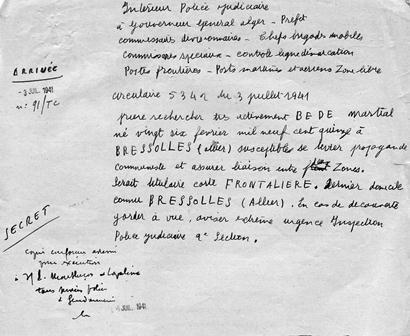 Intérieur Police judiciaire
à Gouverneur General alger - Prefet
commissaires divisionnaires - Chefs brigades mobiles
Commissaires speciaux - controle ligne démarcation
Postes frontières - Postes maritimes et aeriens Zone libre
ARRIVÉE
- 3 JUIL. 1941
n: 91/TC
circulaire 5342 du 3 juillet 1941
prière rechercher très activement BEDE martial
né vingt six février mil neuf cent quinze à
BRESSOLLES (Allier) susceptible se livrer propagande
communiste et assurer liaison entre Zones.
Serait titulaire carte FRONTALIERE. Dernier domicile
connu BRESSOLLES (Allier). En cas de decouverte
garder à vue, aviser extrême urgence Inspection
Police judiciaire 9e Section.
SECRET
copie conforme
pour exécution
à M. de Lapalisse
tous
& Gendarmerie
4 JUIL. 1941